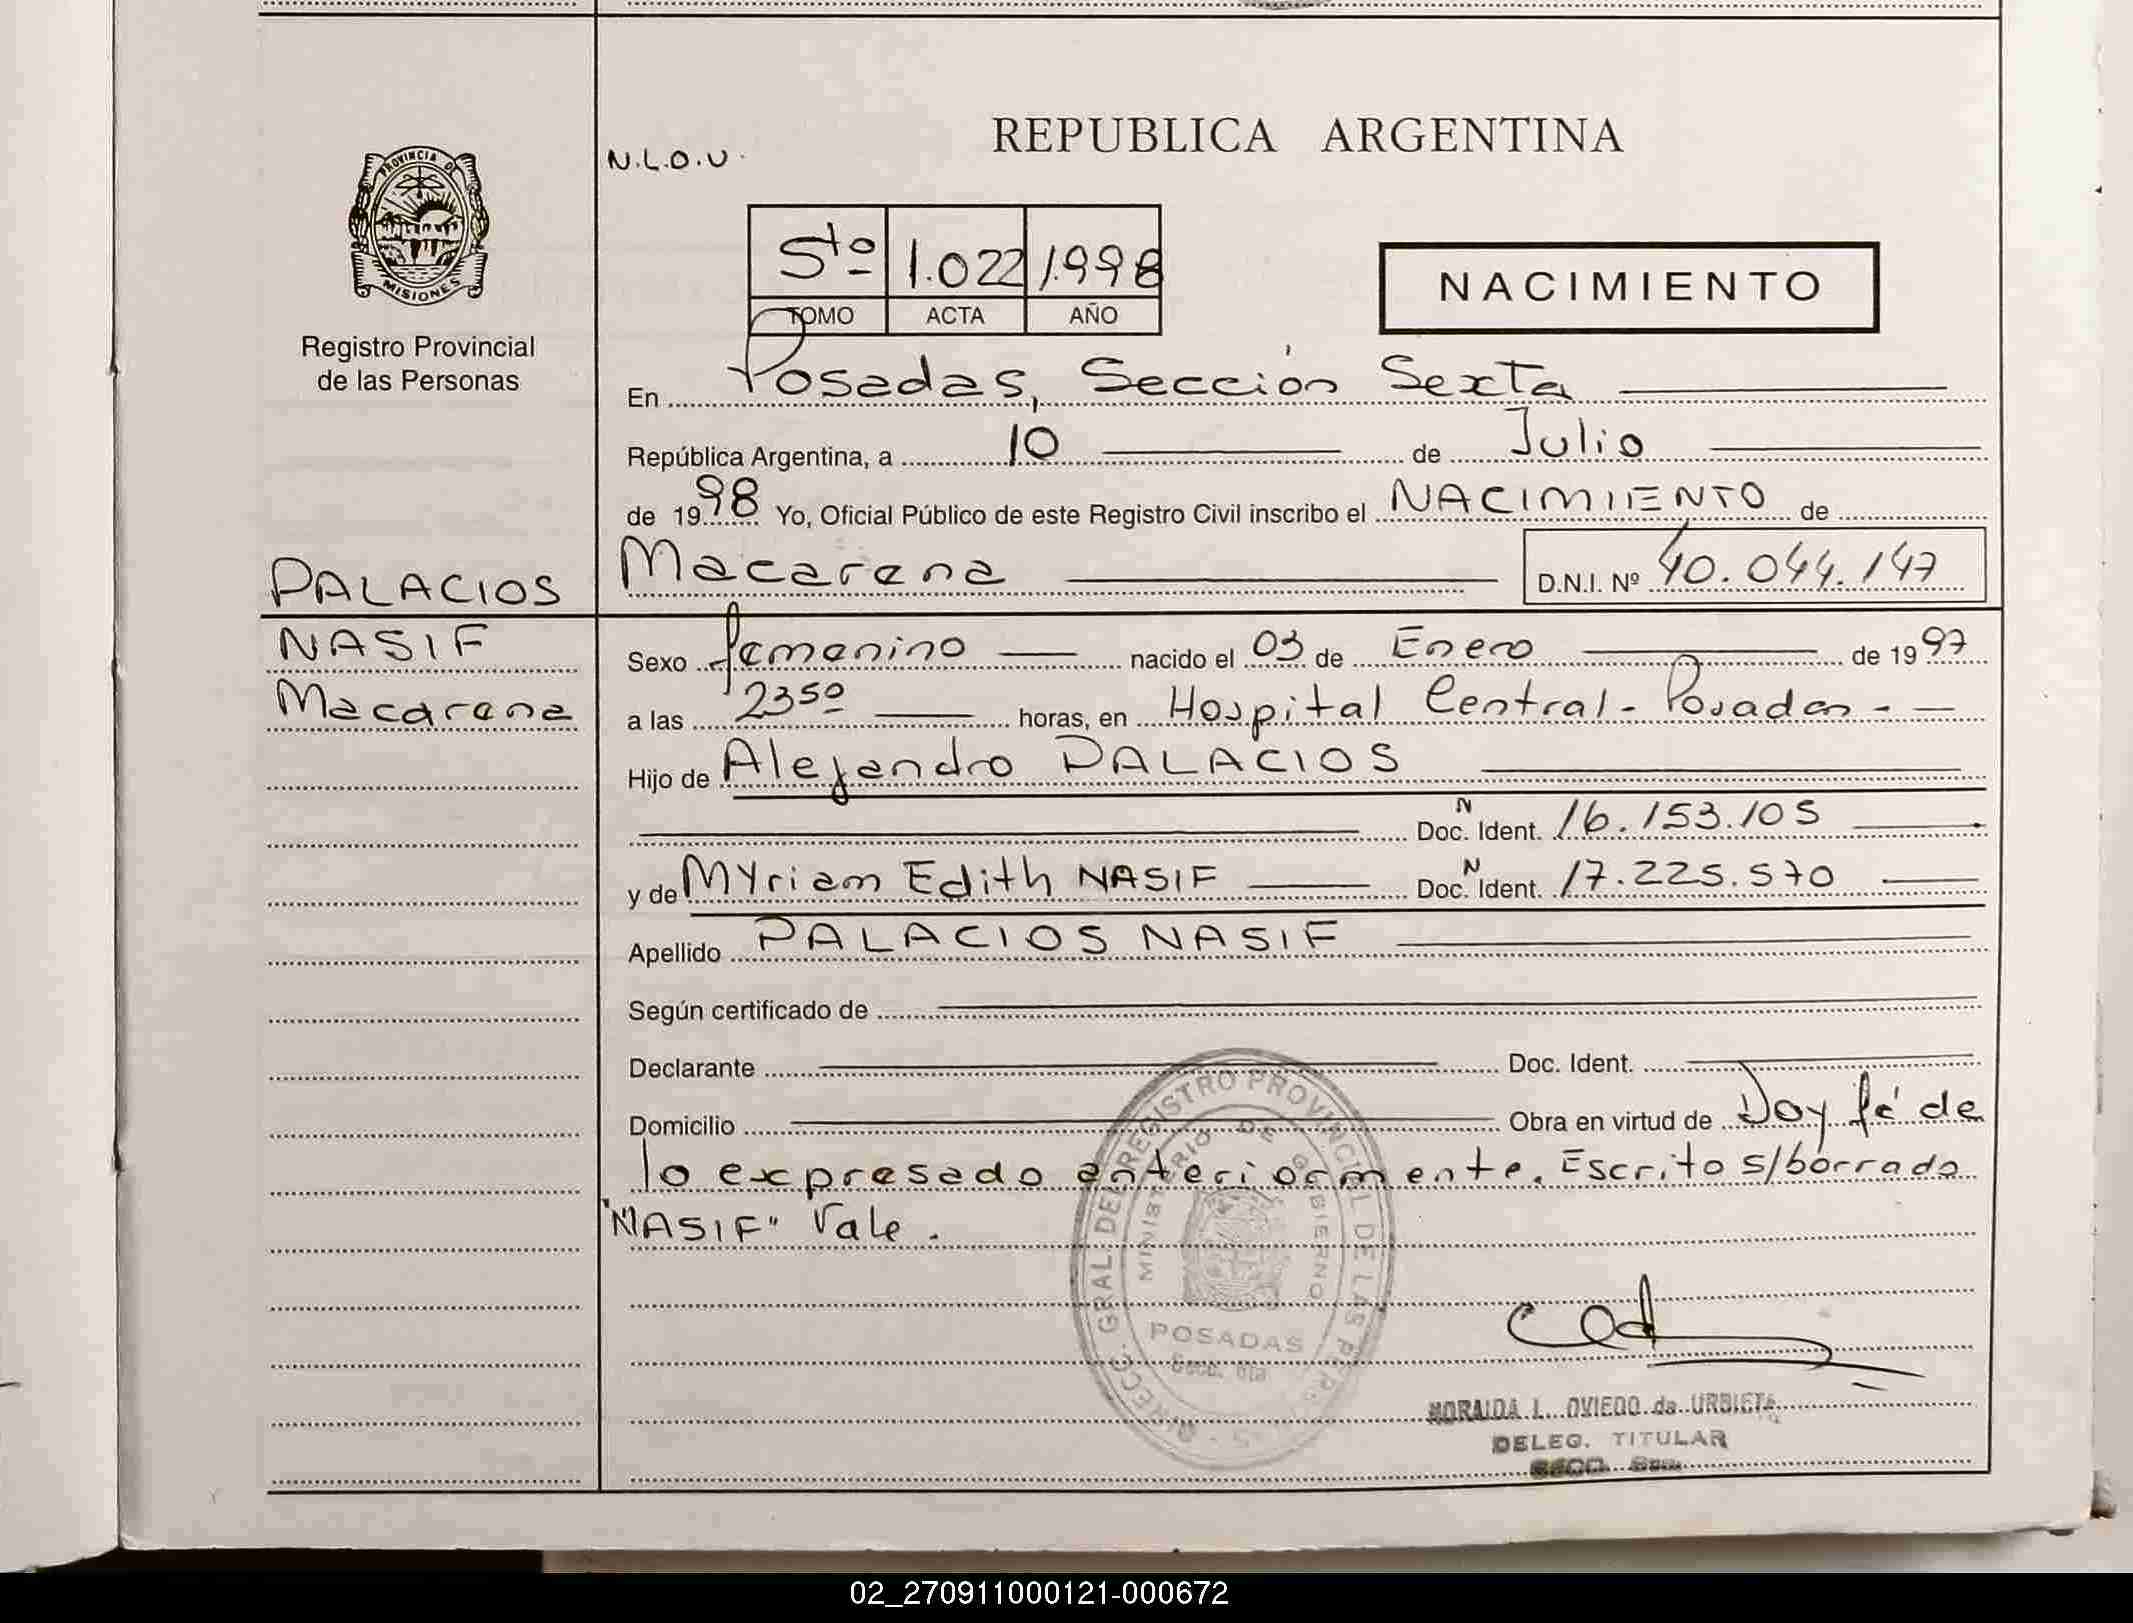 REPUBLICA ARGENTINA
N.L.O.U.
PROVINCIA DE
MISIONES
Registro Provincial
de las Personas
5to 1.022 1.998
TOMO ACTA AÑO
NACIMIENTO
En Posadas, Sección Sexta
República Argentina, a 10 de Julio
de 1998 Yo, Oficial Público de este Registro Civil inscribo el NACIMIENTO de
PALACIOS
NASIF
Macarena
Macarena D.N.I. Nº 40.044.147
Sexo femenino nacido el 03 de Enero de 1997
a las 23 50 horas, en Hospital Central - Posadas -
Hijo de Alejandro PALACIOS
N
Doc. Ident. 16.153.105
y de Myriam Edith NASIF Doc. N Ident. 17.225.570
Apellido PALACIOS NASIF
Según certificado de
Declarante Doc. Ident.
Domicilio Obra en virtud de Doy fé de
lo expresado anteriormente. Escrito s/borrado
"NASIF" Vale.
DIRECC. GRAL DEL REGISTRO PROVINCIAL DE LAS PERSONAS
MINISTERIO DE GOBIERNO
POSADAS
Secc. 6ta
NORAIDA L. OVIEDO de URBIETA
DELEG. TITULAR
02_270911000121-000672